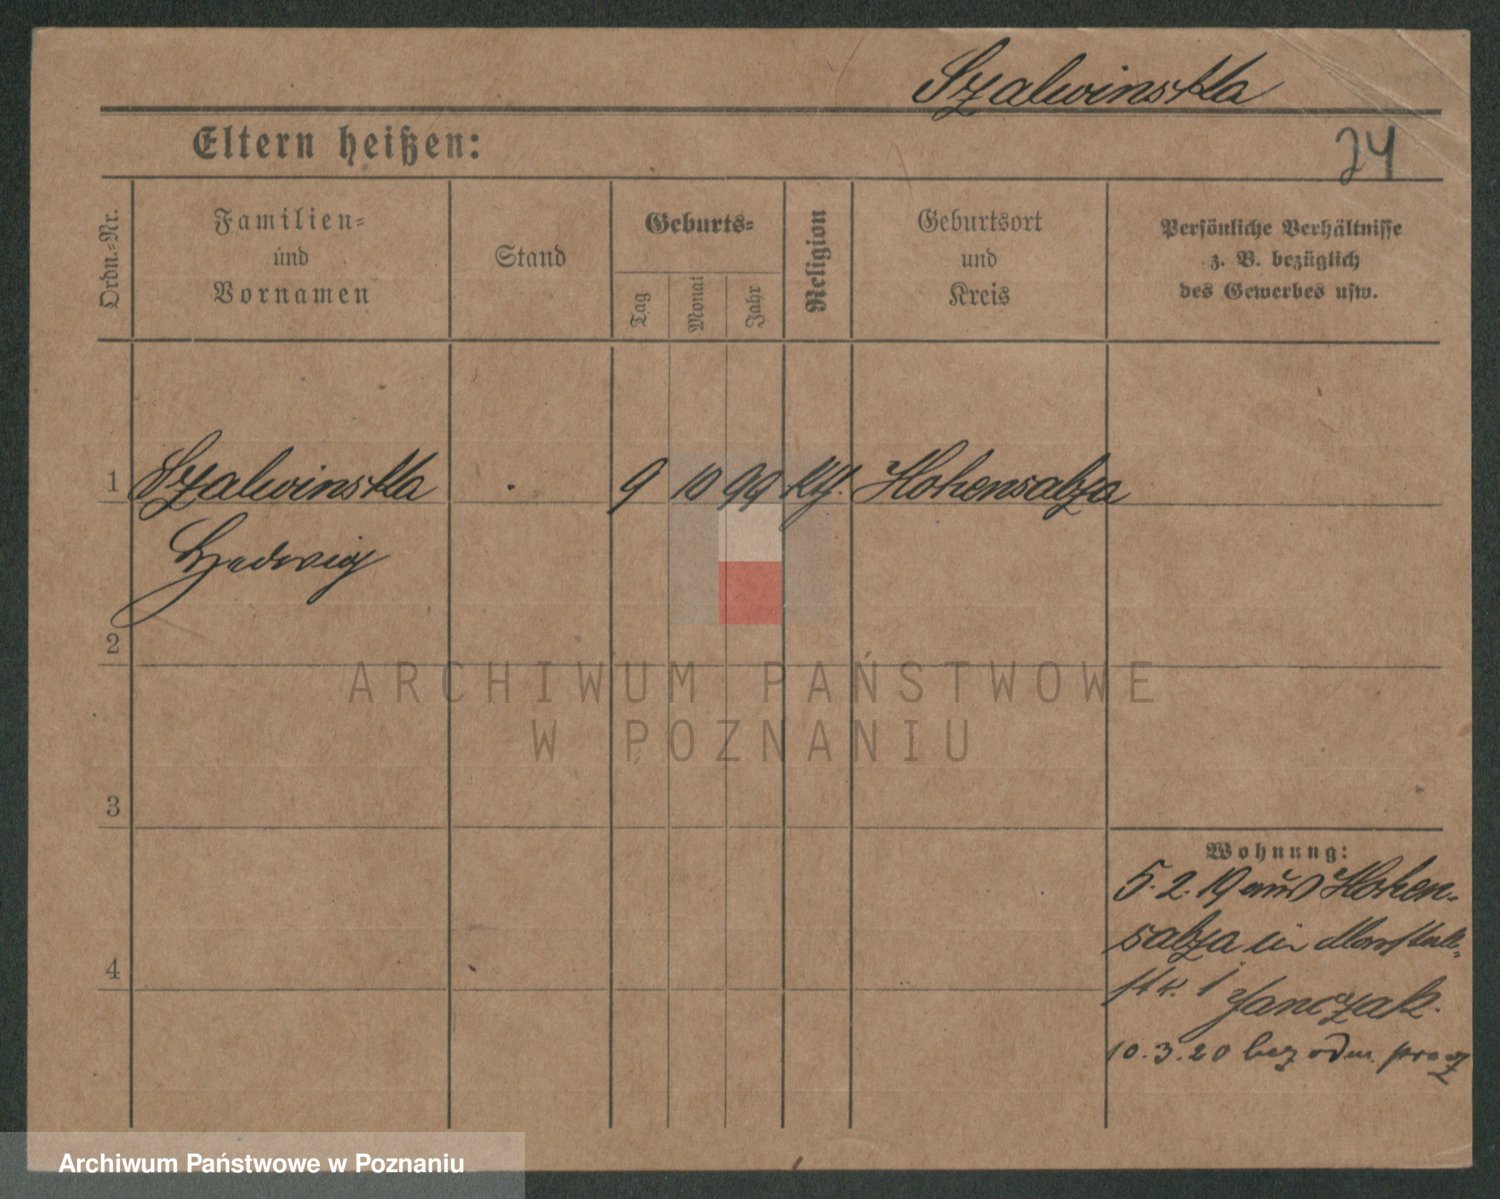 Szalwinska
Eltern heißen:
24
Ordn.-Nr.
Familien-
und
Vornamen
Stand
Geburts-
Tag
Monat
Jahr
Religion
Geburtsort
und
Kreis
Persönliche Verhältnisse
z. B. bezüglich
des Gewerbes usw.
1 Szalwinska . 9 10 99 kth. Hohensalza
Hedwig
2
3
4
Wohnung:
5.2.19 aus Hohen-
salza in
1 Janczak.
10.3.20 bez odm.
ARCHIWUM PAŃSTWOWE
W POZNANIU
Archiwum Państwowe w Poznaniu